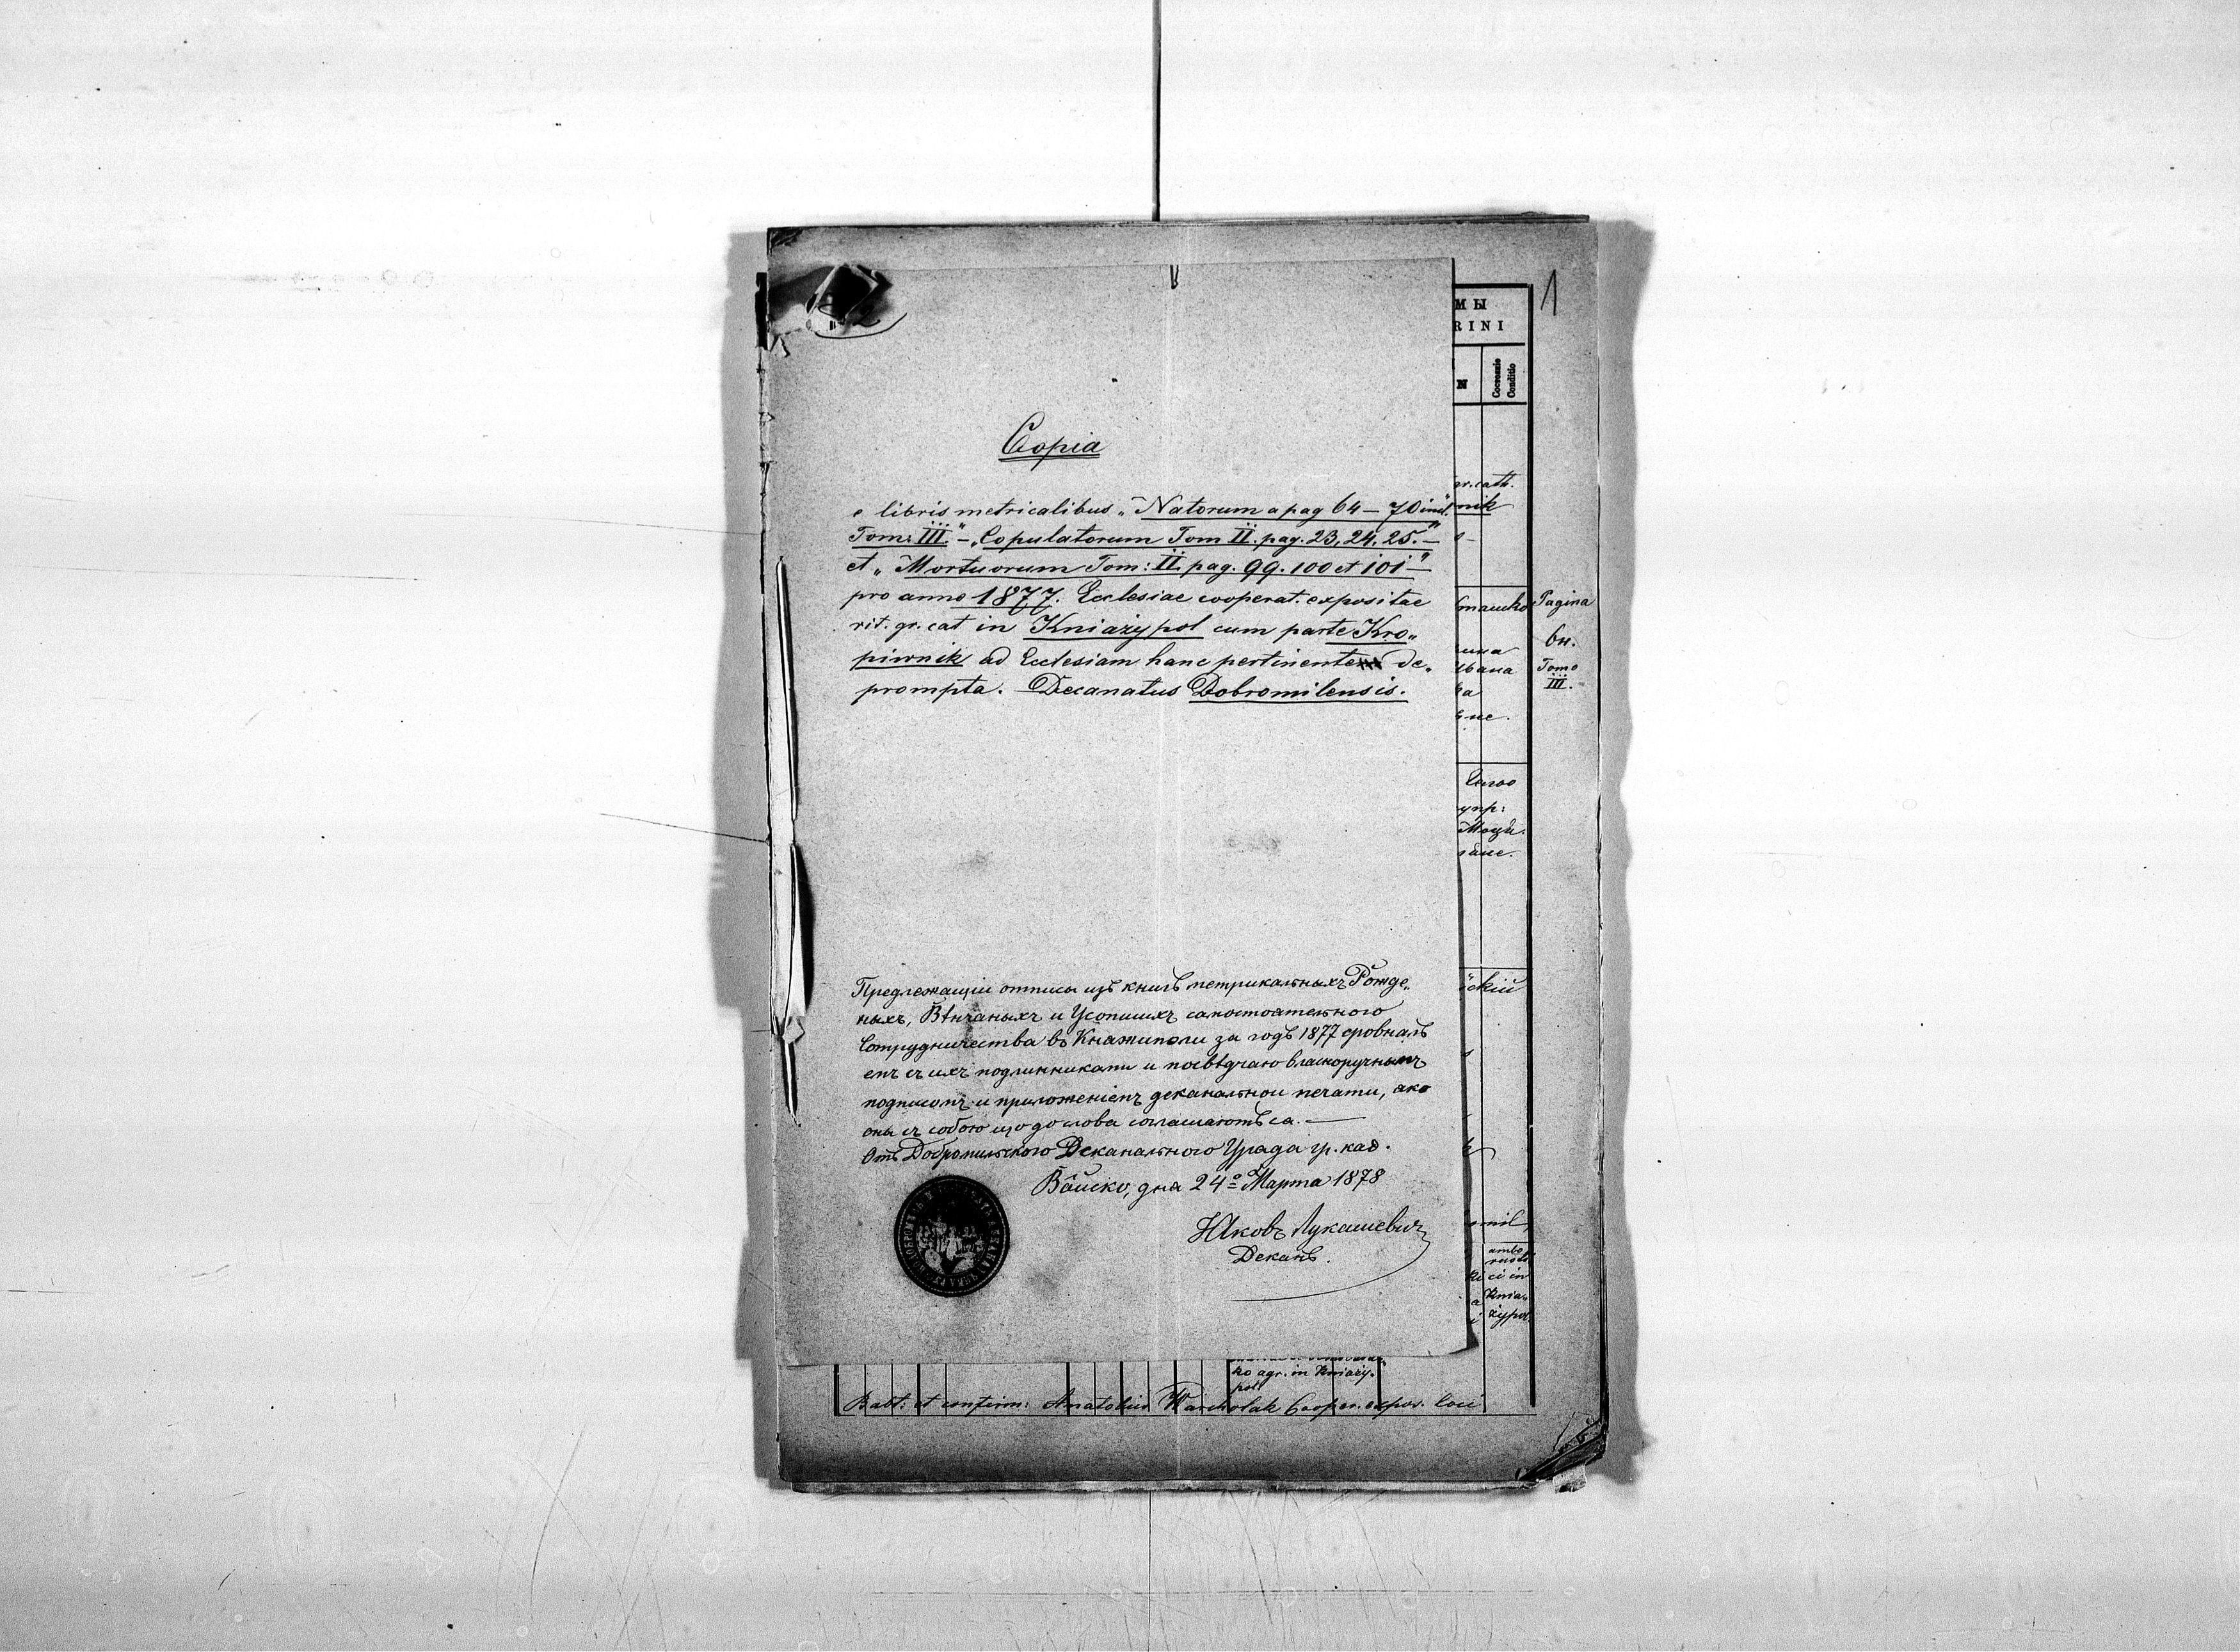 Copia
e libris metricalibus „Natorum a pag 64 — 70 incl.
Tom: III." — „Copulatorum Tom II. pag. 23, 24, 25. —"
et „Mortuorum Tom: II. pag. 99. 100 et 101 —"
pro anno 1877. Ecclesiae cooperat. expositae
rit. gr. cat in Kniażypol cum parte Kro„
piwnik ad Ecclesiam hanc pertinente de„
prompta. — Decanatus Dobromilensis.
Предлежащіи отписы изъ книгъ метрикальныхъ Рожде„
ныхъ, Вѣнчаныхъ и Усопшихъ самостоятельного
Сотрудничества въ Княжиполи за годъ 1877 сровналъ
емъ съ ихъ подлинниками и посвѣдчаю власноручнымъ
подписомъ и приложеніемъ деканальнои печати, яко
они съ собою що до слова соглашаютъ ся. —
Отъ Добромильского Деканального Уряда гр. каѳ.
Вôйско, дня 24º Марта 1878
Яковъ Лукашевич
Деканъ.
МЫ
RINI
N
Состояніе
Conditio
1
gr. cath.
nik
Pagina
64.
Tomo
III.
ambo
rusti
ci in
Knia„
żypol
ko agr. in Kniaży„
pol
Babt: et confirm: Anatolius Warcholak Cooper. expos. loci